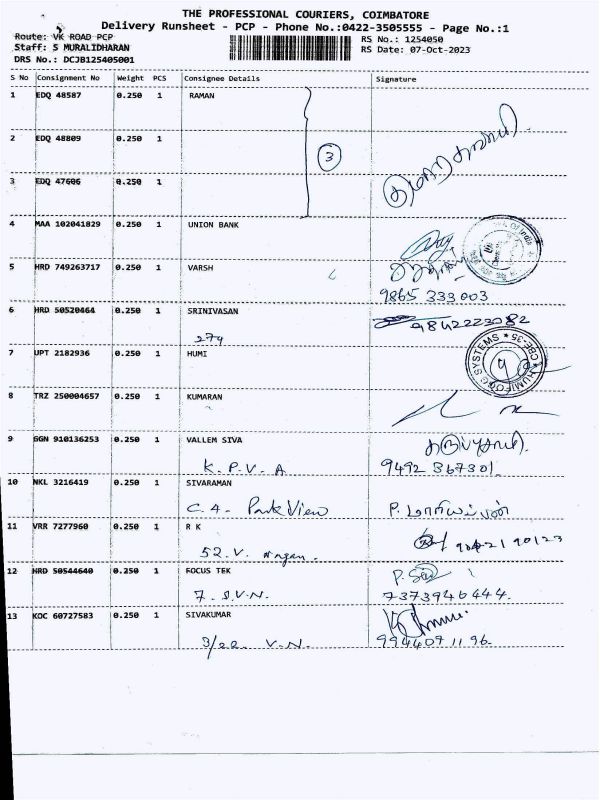 THE PROFESSIONAL COURIERS, COIMBATORE
Delivery Runsheet - PCP - Phone No.:0422-3505555 - Page No.:1
Route: VK ROAD PCP
RS No.: 1254050
Staff: S MURALIDHARAN
RS Date: 07-Oct-2023
DRS No.: DCJB125405001
S No Consignment No Weight PCS Consignee Details Signature
1 EDQ 48587 0.250 1 RAMAN
2 EDQ 48809 0.250 1
3
3 EDQ 47606 0.250 1
4 MAA 102041829 0.250 1 UNION BANK
5 HRD 749263717 0.250 1 VARSH
9865 333003
6 HRD 50520464 0.250 1 SRINIVASAN
274 9842223082
7 UPT 2182936 0.250 1 HUMI
HUMIFOG SYSTEMS * CBE-35 *
8 TRZ 250004657 0.250 1 KUMARAN
9 GGN 910136253 0.250 1 VALLEM SIVA
K.P.V.A 9492 367301.
10 NKL 3216419 0.250 1 SIVARAMAN
C.4- Park View P. மாரியப்பன்
11 VRR 7277960 0.250 1 R K
52.V. nagan.
12 HRD 50544640 0.250 1 FOCUS TEK
7. S.V.N. 7373946444.
13 KOC 60727583 0.250 1 SIVAKUMAR
3/22 V.N. 9944071196.